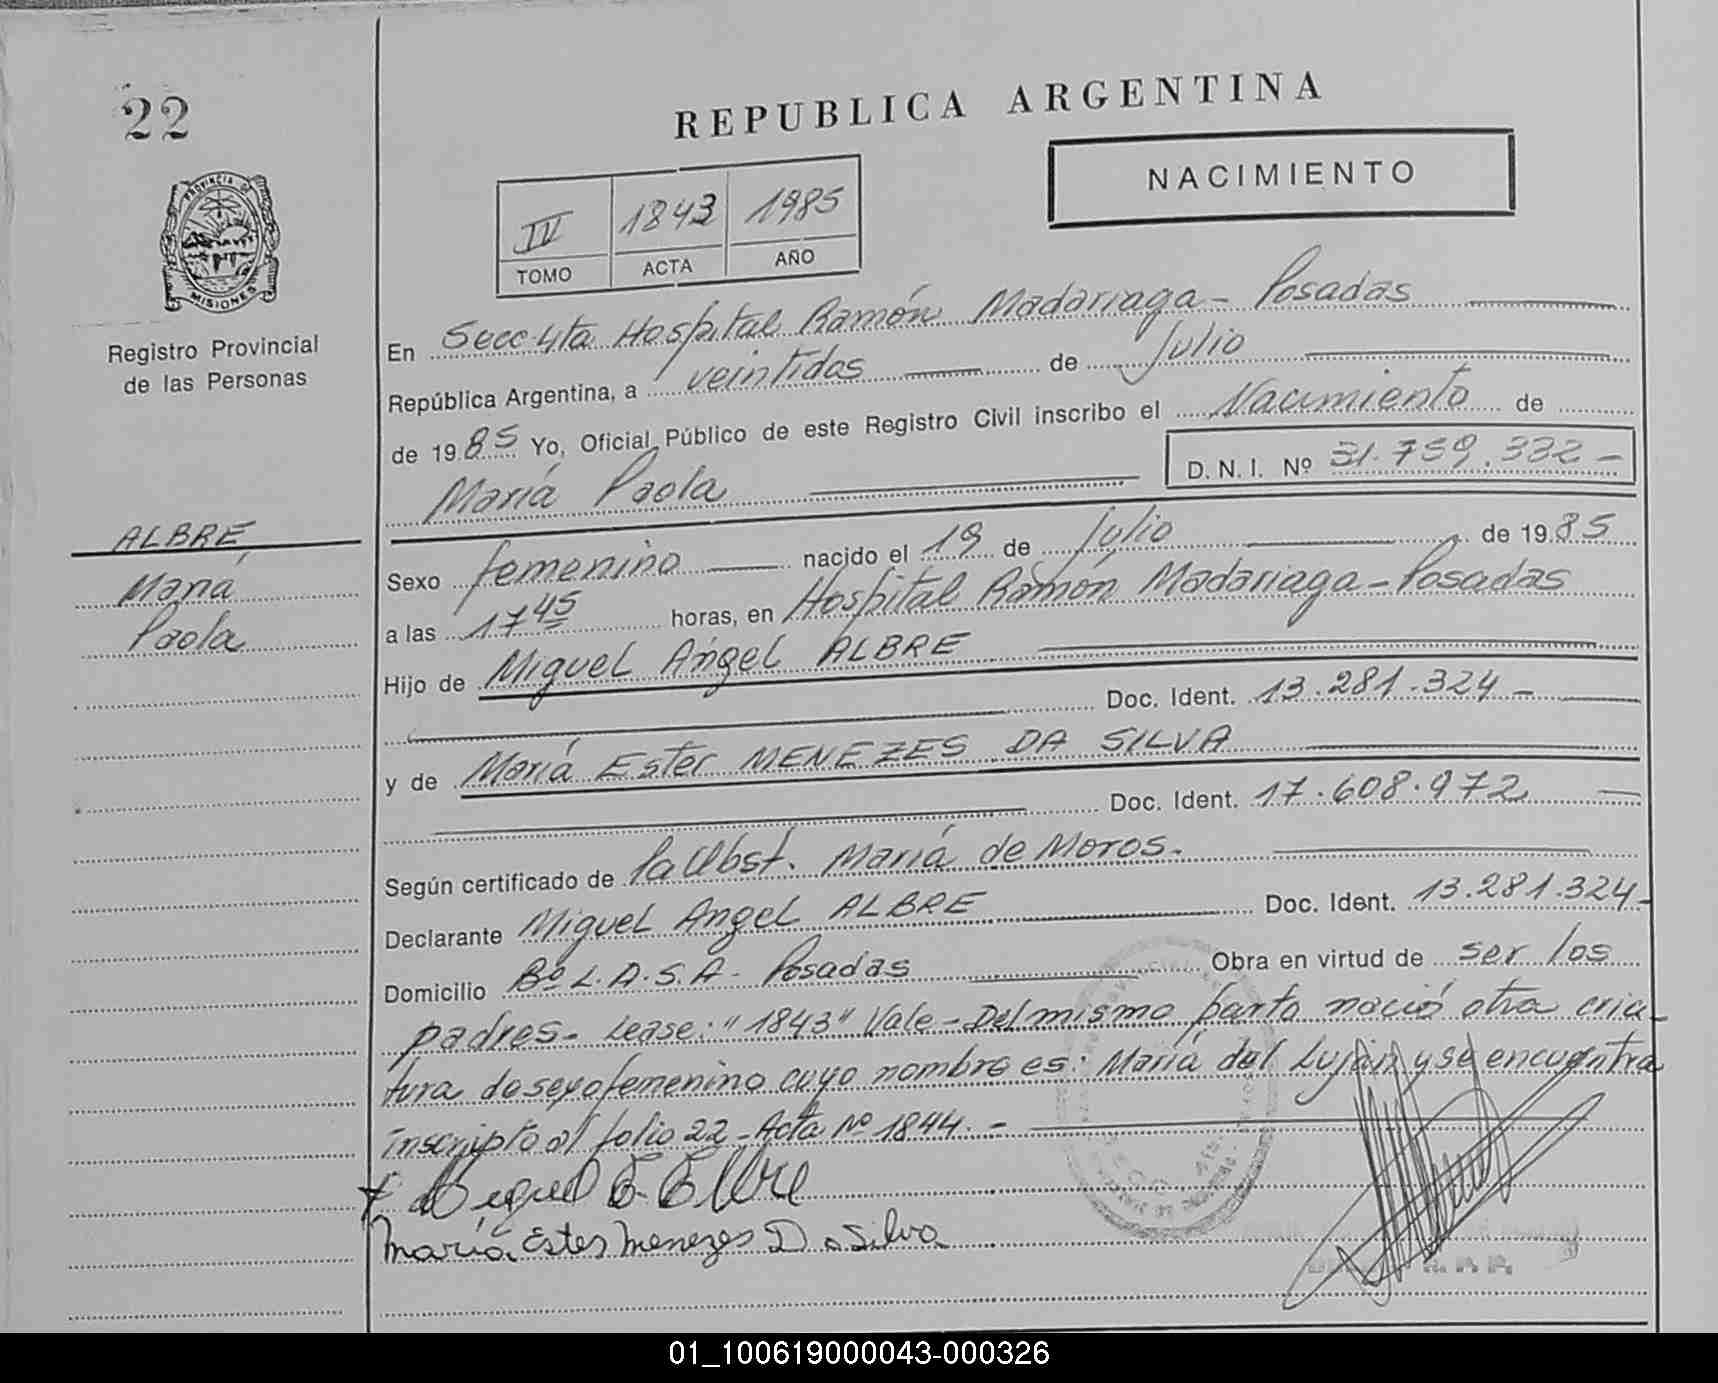 22
REPUBLICA ARGENTINA
NACIMIENTO
IV 1843 1985
TOMO ACTA AÑO
PROVINCIA DE MISIONES
Registro Provincial
de las Personas
En Secc 4ta Hospital Ramón Madariaga - Posadas
República Argentina, a veintidos de Julio
de 1985 Yo, Oficial Público de este Registro Civil inscribo el Nacimiento de
María Paola D.N.I. Nº 31.759.332 -
ALBRE
María
Paola
Sexo femenino nacido el 19 de Julio de 1985
a las 17 45 horas, en Hospital Ramón Madariaga - Posadas
Hijo de Miguel Angel ALBRE
Doc. Ident. 13.281.324 -
y de María Ester MENEZES DA SILVA
Doc. Ident. 17.608.972
Según certificado de la Obst. María de Moros.
Declarante Miguel Angel ALBRE Doc. Ident. 13.281.324 -
Domicilio Bº L.A.S.A - Posadas Obra en virtud de ser los
padres - Lease: "1843" Vale - Del mismo parto nació otra cria-
tura de sexo femenino cuyo nombre es: María del Luján y se encuentra
inscripto al folio 22 - Acta Nº 1844. -
María Ester Menezes Da Silva
R. P. P.
01_100619000043-000326